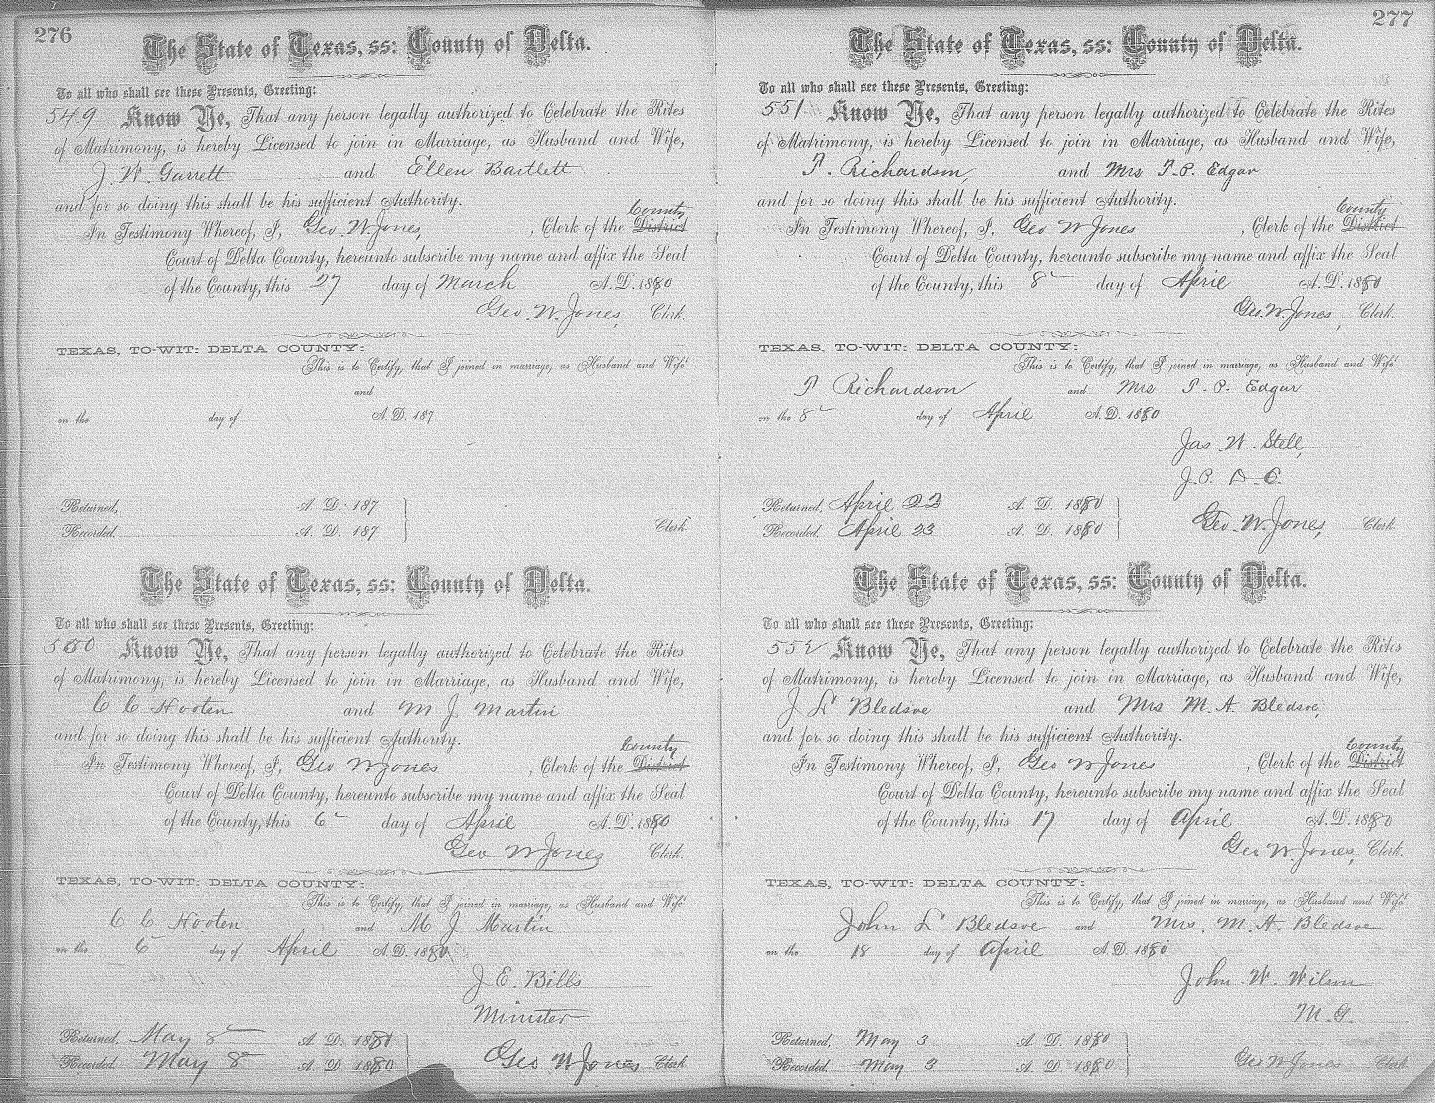 276
The State of Texas, ss: County of Delta.
To all who shall see these Presents, Greeting:
549 Know Ye, That any person legally authorized to Celebrate the Rites
of Matrimony, is hereby Licensed to join in Marriage, as Husband and Wife,
J. W. Garrett and Ellen Bartlett
and for so doing this shall be his sufficient Authority.
County
In Testimony Whereof, I, Geo. W Jones, , Clerk of the District
Court of Delta County, hereunto subscribe my name and affix the Seal
of the County, this 27 day of March A. D. 1880
Geo. W. Jones, Clerk.
TEXAS, TO-WIT: DELTA COUNTY:
This is to Certify, that I joined in marriage, as Husband and Wife
and
on the day of A. D. 187
Returned, A. D. 187
Recorded, A. D. 187 Clerk
The State of Texas, ss: County of Delta.
To all who shall see these Presents, Greeting:
550 Know Ye, That any person legally authorized to Celebrate the Rites
of Matrimony, is hereby Licensed to join in Marriage, as Husband and Wife,
C C Hooten and M J Martin
and for so doing this shall be his sufficient Authority.
County
In Testimony Whereof, I, Geo W Jones , Clerk of the District
Court of Delta County, hereunto subscribe my name and affix the Seal
of the County, this 6 day of April A. D. 1880
Geo W Jones Clerk.
TEXAS, TO-WIT: DELTA COUNTY:
This is to Certify, that I joined in marriage, as Husband and Wife
C C Hooten and M J Martin
on the 6 day of April A. D. 1880
J. E. Bills
Minister
Returned, May 8 A. D. 1880
Recorded, May 8 A. D. 1880 Geo W Jones Clerk
277
The State of Texas, ss: County of Delta.
To all who shall see these Presents, Greeting:
551 Know Ye, That any person legally authorized to Celebrate the Rites
of Matrimony, is hereby Licensed to join in Marriage, as Husband and Wife,
Richardson and Mrs Edgar
and for so doing this shall be his sufficient Authority.
County
In Testimony Whereof, I, Geo W Jones , Clerk of the District
Court of Delta County, hereunto subscribe my name and affix the Seal
of the County, this 8 day of April A. D. 1880
Geo. W. Jones, Clerk.
TEXAS, TO-WIT: DELTA COUNTY:
This is to Certify, that I joined in marriage, as Husband and Wife
Richardson and Mrs Edgar
on the 8 day of April A. D. 1880
Jas W. Stell,
J. P. D. C.
Returned, April 22 A. D. 1880
Recorded, April 23 A. D. 1880 Geo. W. Jones, Clerk
The State of Texas, ss: County of Delta.
To all who shall see these Presents, Greeting:
552 Know Ye, That any person legally authorized to Celebrate the Rites
of Matrimony, is hereby Licensed to join in Marriage, as Husband and Wife,
J L Bledsoe and Mrs M. A Bledsoe,
and for so doing this shall be his sufficient Authority.
County
In Testimony Whereof, I, Geo W Jones , Clerk of the District
Court of Delta County, hereunto subscribe my name and affix the Seal
of the County, this 17 day of April A. D. 1880
Geo W Jones, Clerk.
TEXAS, TO-WIT: DELTA COUNTY:
This is to Certify, that I joined in marriage, as Husband and Wife
John L Bledsoe and Mrs. M. A. Bledsoe
on the 18 day of April A. D. 1880
John W. Wilson
M. G.
Returned, May 3 A. D. 1880
Recorded, May 3 A. D. 1880 Geo W Jones Clerk